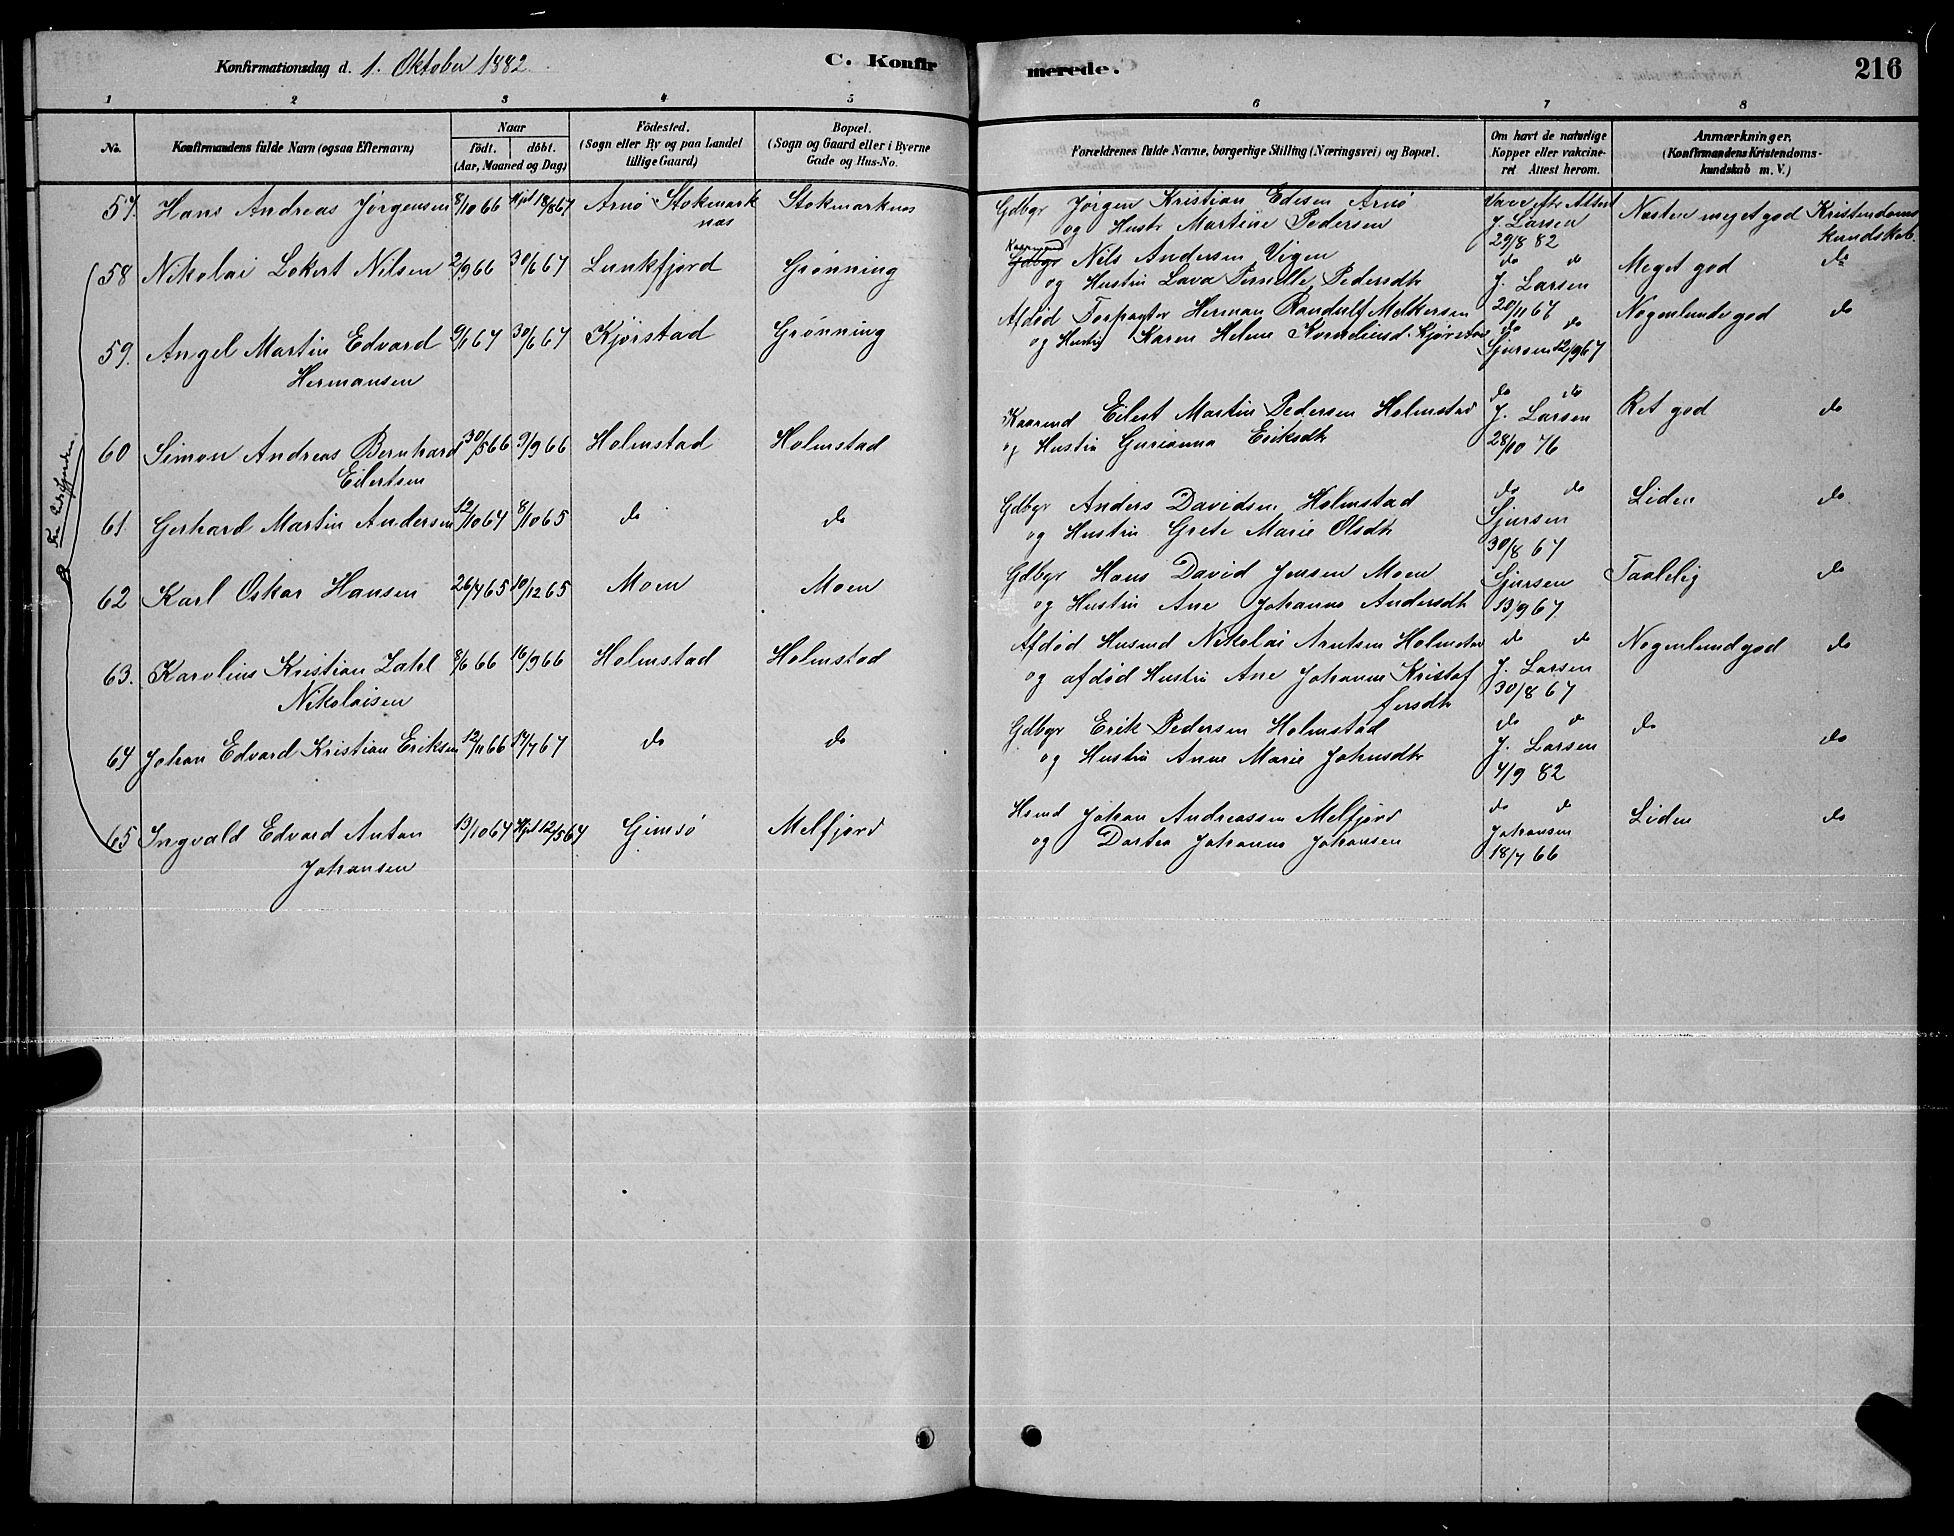 Konfirmationsdag d. 1. Oktober 1882
C. Konfirmerede.
216
1 2 3 4 5 6 7 8
No.
Konfirmandens fulde Navn (ogsaa Efternavn)
Naar
födt. döbt.
(Aar, Maaned og Dag)
Födested.
(Sogn eller By og paa Landet
tillige Gaard)
Bopæl.
(Sogn og Gaard eller i Byerne
Gade og Hus-No.
Forældrenes fulde Navne, borgerlige Stilling (Næringsvei) og Bopæl.
Om havt de naturlige
Kopper eller vakcine-
ret Attest herom.
Anmærkninger.
(Konfirmandens Kristendoms-
kundskab m. V.)
57. Hans Andreas Jørgensen 8/10 66 Hjd 18/8 67 Arnø Stokmark
næs
Stokmarknæs
Gdbgr Jørgen Kristian Edisen Arnø
og Hustr Martine Pedersen
Vacc eftr Attest
J. Larsen
29/8 82
Næsten meget god Kristendoms
kundskab.
58 Nikolai Lokert Nilsen 2/9 66 30/6 67 Lunkfjord Grønning
Kaarmand
Gdbgr Nils Andersen Vigen
og Hustru Lava Pernille Pedersdtr
do do
J. Larsen
20/11 67
Meget god do
59. Angel Martin Edvard
Hermansen
9/1 67 30/6 67 Kjørstad Grønning
Afdød Forpagter Herman Randulf Melkersen
og Hustru Karen Helene Kornelius d. Kjørstad
do do
Sjursen 12/9 67
Nogenlunde god do
60 Simon Andreas Bernhard
Eilertsen
30/5 66 9/9 66 Holmstad Holmstad
Kaarmd Eilert Martin Pedersen Holmstad
og Hustru Gurianna Eriksdtr
do do
J. Larsen
28/10 76
Ret god do
61 Gerhard Martin Andersen 12/10 64 8/10 65 do do
Gdbgr Anders Davidsen Holmstad
og Hustru Grete Marie Olsdtr
do do
Sjursen
30/8 67
Liden do
62 Karl Oskar Hansen 26/7 65 10/12 65 Moen Moen
Gdbgr Hans David Jensen Moen
og Hustru Ane Johanna Andersdtr
Sjursen
13/9 67.
Taalelig do
63. Karolius Kristian Zahl
Nikolaisen
8/6 66 16/9 66 Holmstad Holmstad
Afdød Husmd Nikolai Arntsen Holmstad
og afdød Hustru Ane Johanne Kristof
fersdtr
do do
J. Larsen
30/8 67
Nogenlund god do
64 Johan Edvard Kristian Eriksen 12/11 66 14/7 67 do do
Gdbgr Erik Pedersen Holmstad
og Hustru Anne Marie Johnsdtr
do do
J. Larsen
4/9 82
do do
65 Ingvald Edvard Anton
Johansen
13/10 64 Hjd 12/5 67 Gimsø Melfjord
Hsmd Johan Andreassen Melfjord
og Dortea Johanna Johansen
do do
Johansen
18/7 66
Liden do